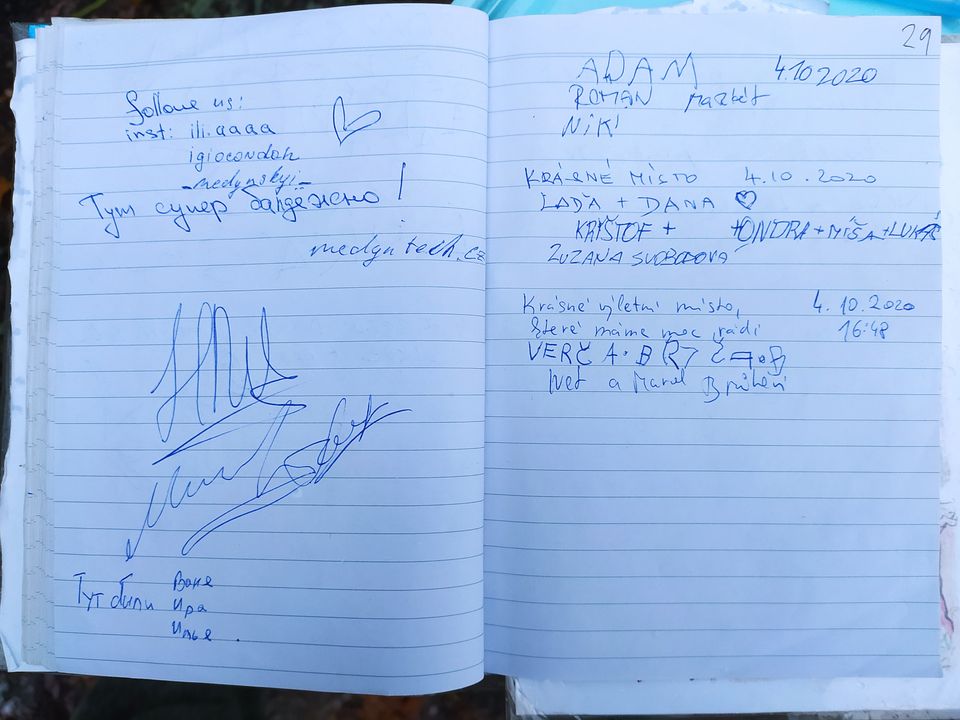 follow us:
inst: ili.aaaa
igiocondah
_medynskyi_
Тут супер бандежно!
medyntech.cz
Тут были Ване
Ира
Илье.
29
ADAM 4.10 2020
ROMAN
NIKI
KRÁSNÉ MÍSTO 4.10.2020
LAĎA + DANA
KRYŠTOF + +ONDRA+MÍŠA+LUKÁŠ
ZUZANA SVOBODOVA
Krásné výletní místo, 4.10.2020
které máme moc rádi 16:48
a Marcel